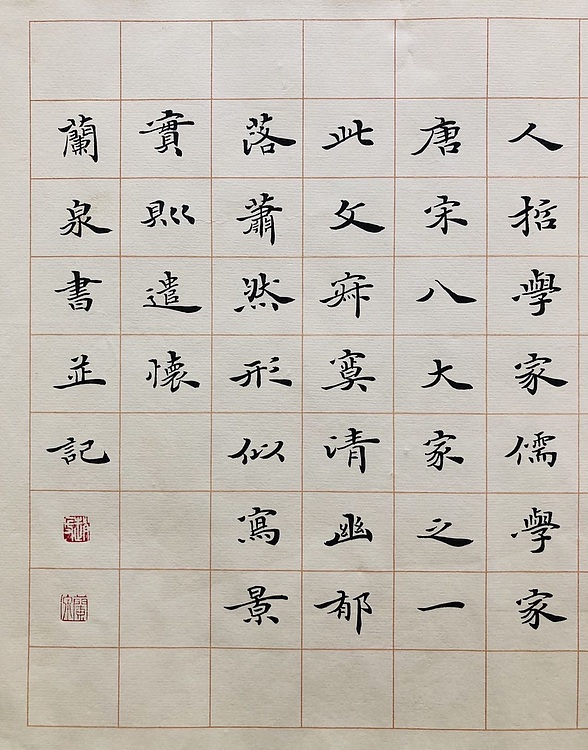 人哲學家儒學家
唐宋八大家之一
此文寂寞清幽郁
落蕭然形似寫景
實則遣懷
蘭泉書並記
蘭泉